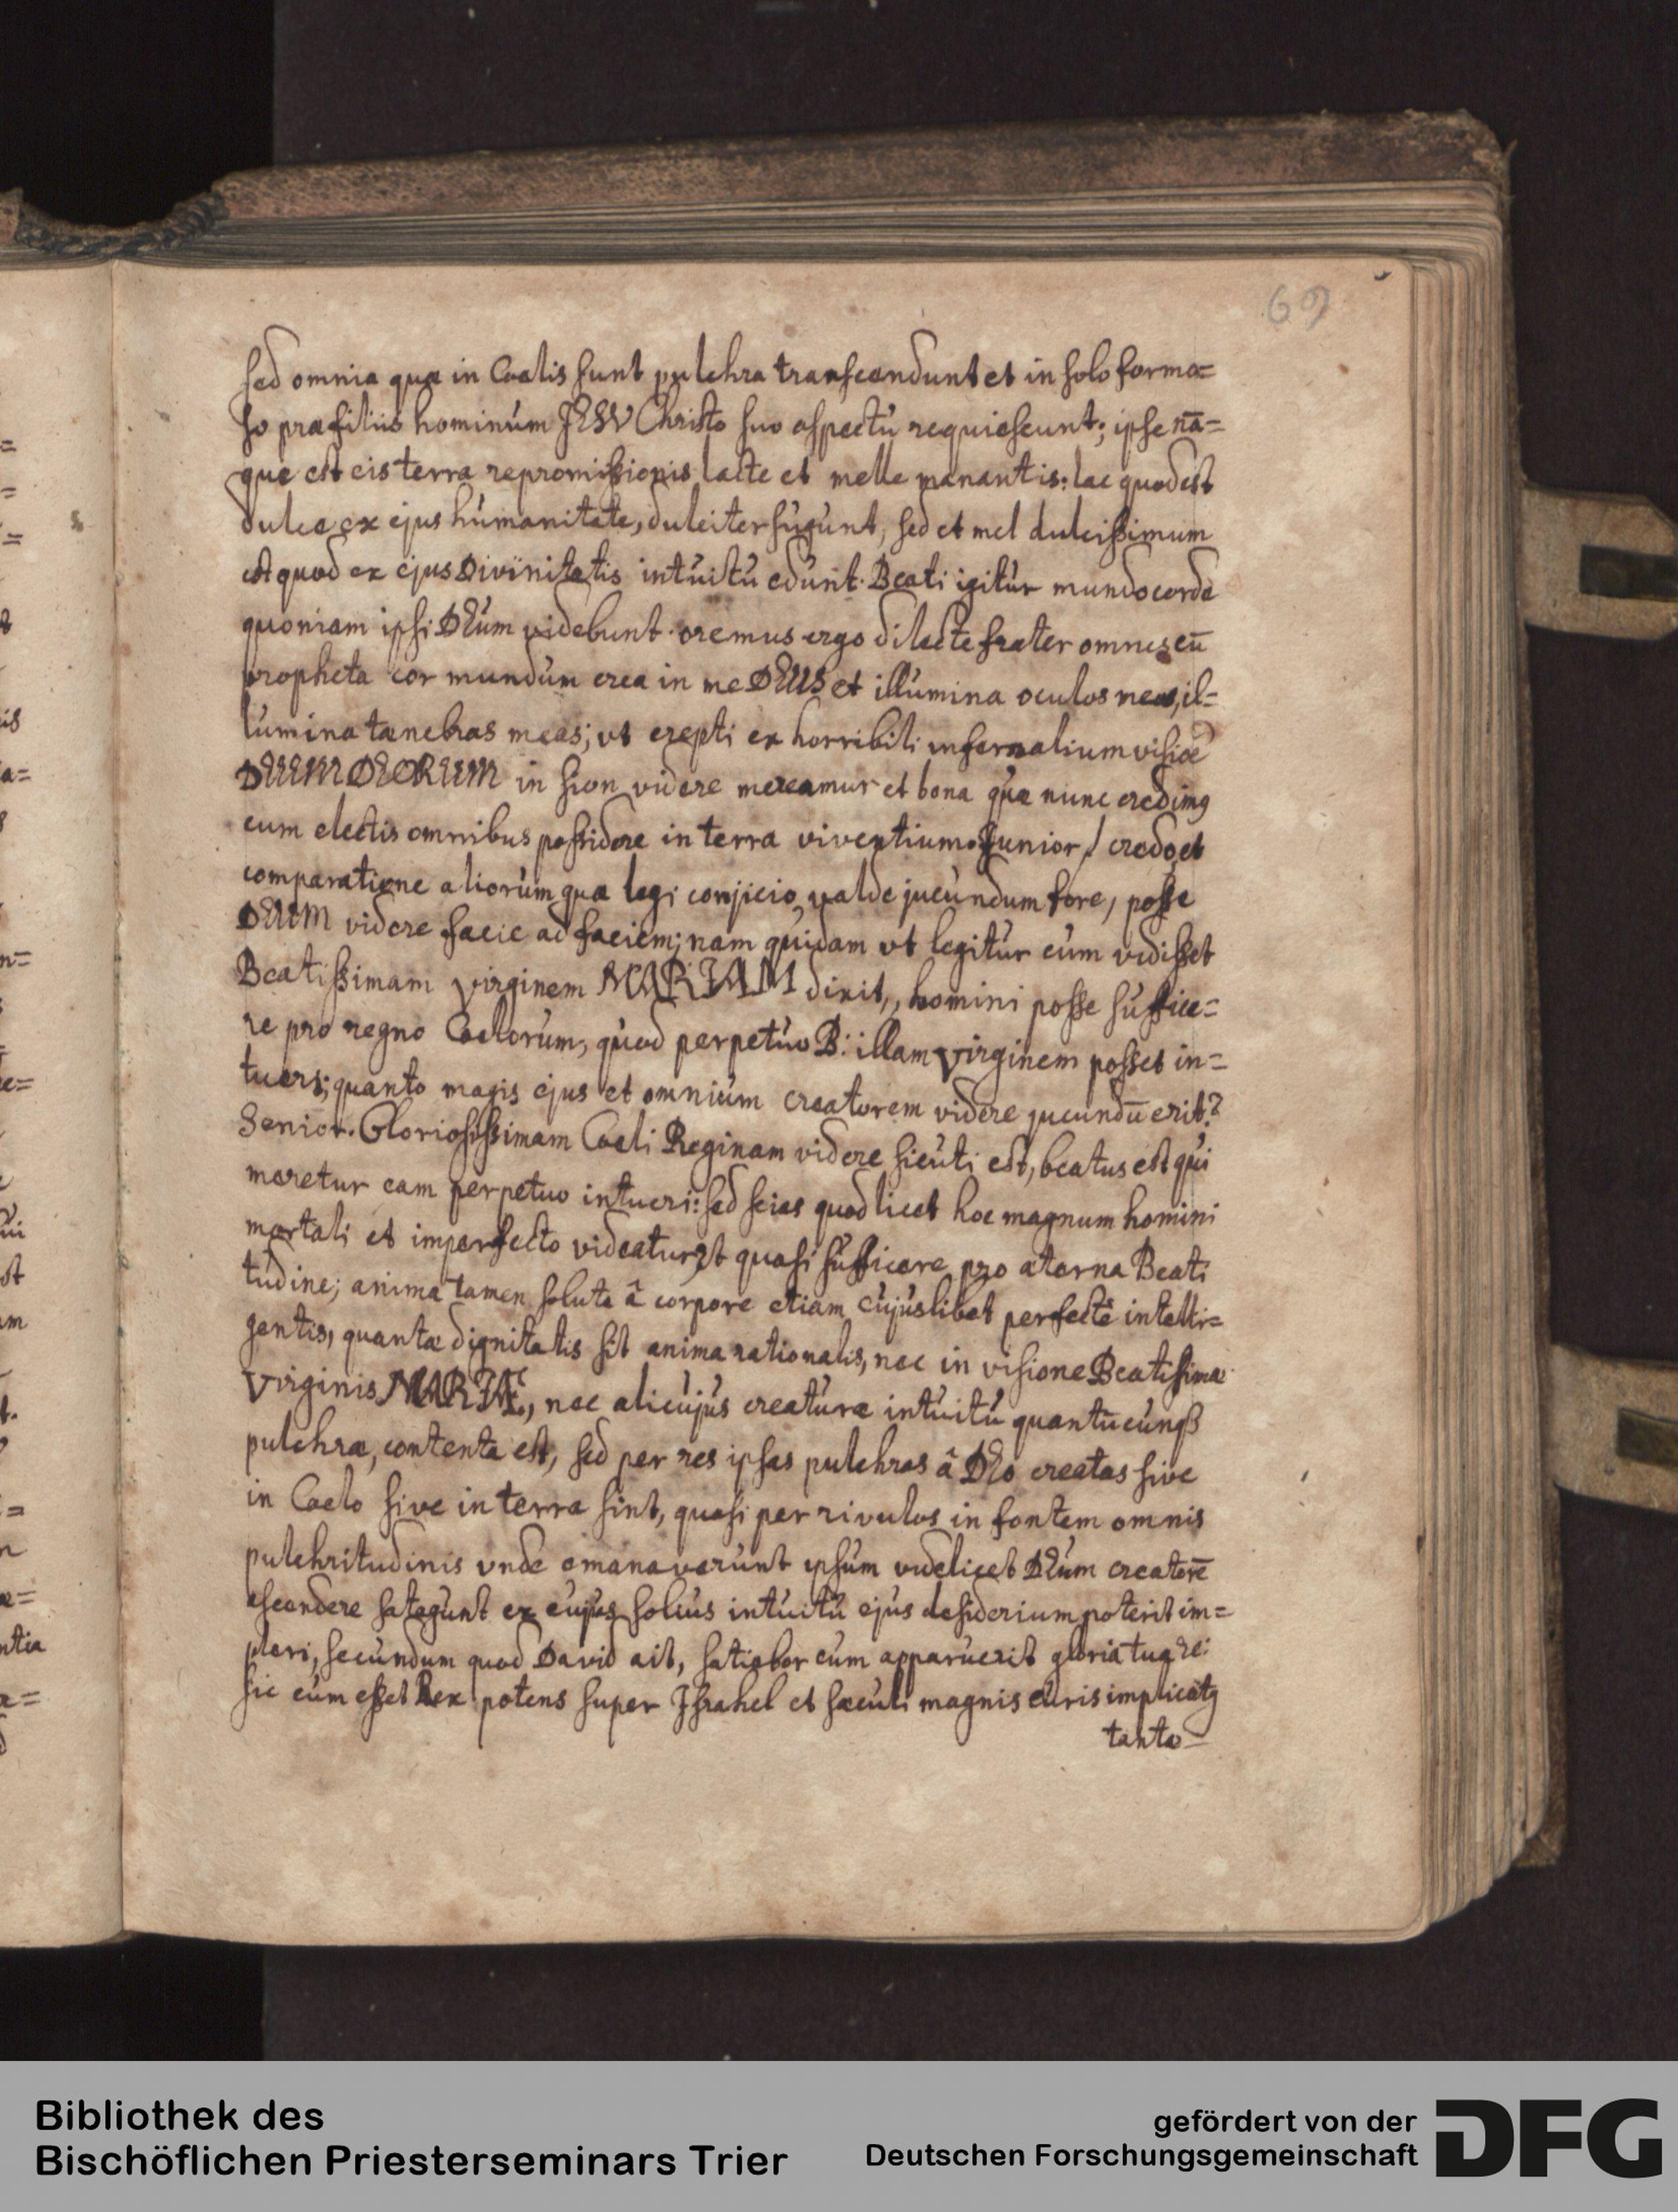 69
sed omnia quæ in Cælis sunt pulchra transcendunt et in solo formo=
so præ filiis hominum JESU Christo suo aspectu requiescunt; ipse nā=
que est eis terra repromissionis lacte et melle manantis: lac quod est
dulce ex ejus humanitate, dulciter sugunt, sed et mel dulcissimum
est quod ex ejus Divinitatis intuitu edunt. Beati igitur mundo corde
quoniam ipsi DEum videbunt. oremus ergo dilecte frater omnes cū
propheta cor mundum crea in me DEUS et illumina oculos meos, il=
lumina tenebras meas; ut erepti ex horribili infernalium visioē
DEUM DEORUM in sion videre mereamur et bona quæ nunc credimꝰ
cum electis omnibus possidere in terra viventium. Junior / credo, et
comparatione aliorum quæ legi conjicio valde jucundum fore, posse
DEUM videre facie ad faciem; nam quidam vt legitur cum vidisset
Beatissimam virginem MARIAM dixit, homini posse suffice=
re pro regno Cælorum, quod perpetuo B: illam Virginem posset in=
tueri; quanto magis ejus et omnium creatorem videre jucundū erit?
Senior. Gloriosissimam Cæli Reginam videre sicuti est, beatus est qui
meretur eam perpetuo intueri: sed scias quod licet hoc magnum homini
mortali et imperfecto videatur, et quasi sufficere pro æterna Beati
tudine; anima tamen soluta â corpore etiam cujuslibet perfectè intelli=
gentis, quantæ dignitatis sit anima rationalis, nec in visione Beatissimæ
Virginis MARIÆ, nec alicujus creaturæ intuitu quantūcunqꝫ
pulchræ, contenta est, sed per res ipsas pulchras â DEo creatas sive
in Cælo sive in terra sint, quasi per rivulos in fontem omnis
pulchritudinis vnde emanaverunt ipsum videlicet DEum creatorē
ascendere satagunt ex cujus solius intuitu ejus desiderium poterit im=
pleri, secundum quod David ait, satiabor cum apparuerit gloria tua
sic cum esset Rex potens super Israhel et sæculi magnis curis implicatꝰ
tanto=
Bibliothek des
Bischöflichen Priesterseminars Trier
gefördert von der
Deutschen Forschungsgemeinschaft
DFG